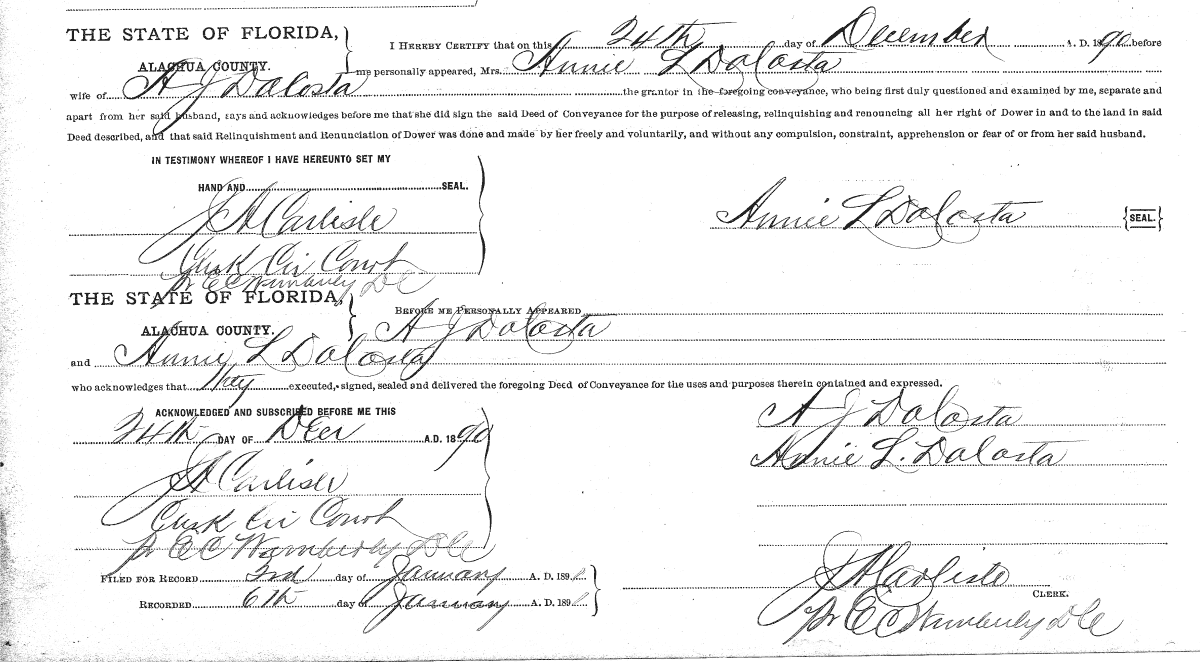 THE STATE OF FLORIDA,
ALACHUA COUNTY.
I HEREBY CERTIFY that on this 24th day of December A. D. 1890 before
me personally appeared, Mrs. Annie L DaCosta
wife of A J DaCosta the grantor in the foregoing conveyance, who being first duly questioned and examined by me, separate and
apart from her said husband, says and acknowledges before me that she did sign the said Deed of Conveyance for the purpose of releasing, relinquishing and renouncing all her right of Dower in and to the land in said
Deed described, and that said Relinquishment and Renunciation of Dower was done and made by her freely and voluntarily, and without any compulsion, constraint, apprehension or fear of or from her said husband.
IN TESTIMONY WHEREOF I HAVE HEREUNTO SET MY
HAND AND SEAL.
J A Carlisle
Clerk Cir Court
pr E C Wimberly D C
Annie L DaCosta {SEAL.}
THE STATE OF FLORIDA,
ALACHUA COUNTY.
BEFORE ME PERSONALLY APPEARED
A J DaCosta
and Annie L DaCosta
who acknowledges that they executed, signed, sealed and delivered the foregoing Deed of Conveyance for the uses and purposes therein contained and expressed.
ACKNOWLEDGED AND SUBSCRIBED BEFORE ME THIS
24th DAY OF Decr A.D. 1890
J A Carlisle
Clerk Cir Court
pr E C Wimberly D C
A J DaCosta
Annie L. DaCosta
FILED FOR RECORD 3rd day of January A. D. 1891
RECORDED 6th day of January A. D. 1891
J A Carlisle
CLERK.
pr E C Wimberly D C